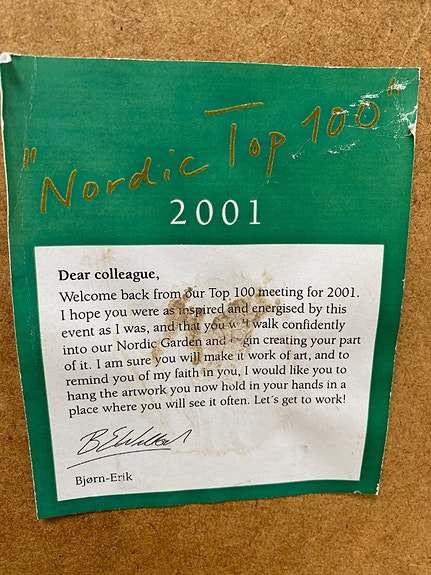 "Nordic Top 100"
2001
Dear colleague,
Welcome back from our Top 100 meeting for 2001.
I hope you were as inspired and energised by this
event as I was, and that you walk confidently
into our Nordic Garden and creating your part
of it. I am sure you will make it work of art, and to
remind you of my faith in you, I would like you to
hang the artwork you now hold in your hands in a
place where you will see it often. Let´s get to work!
Bjørn-Erik